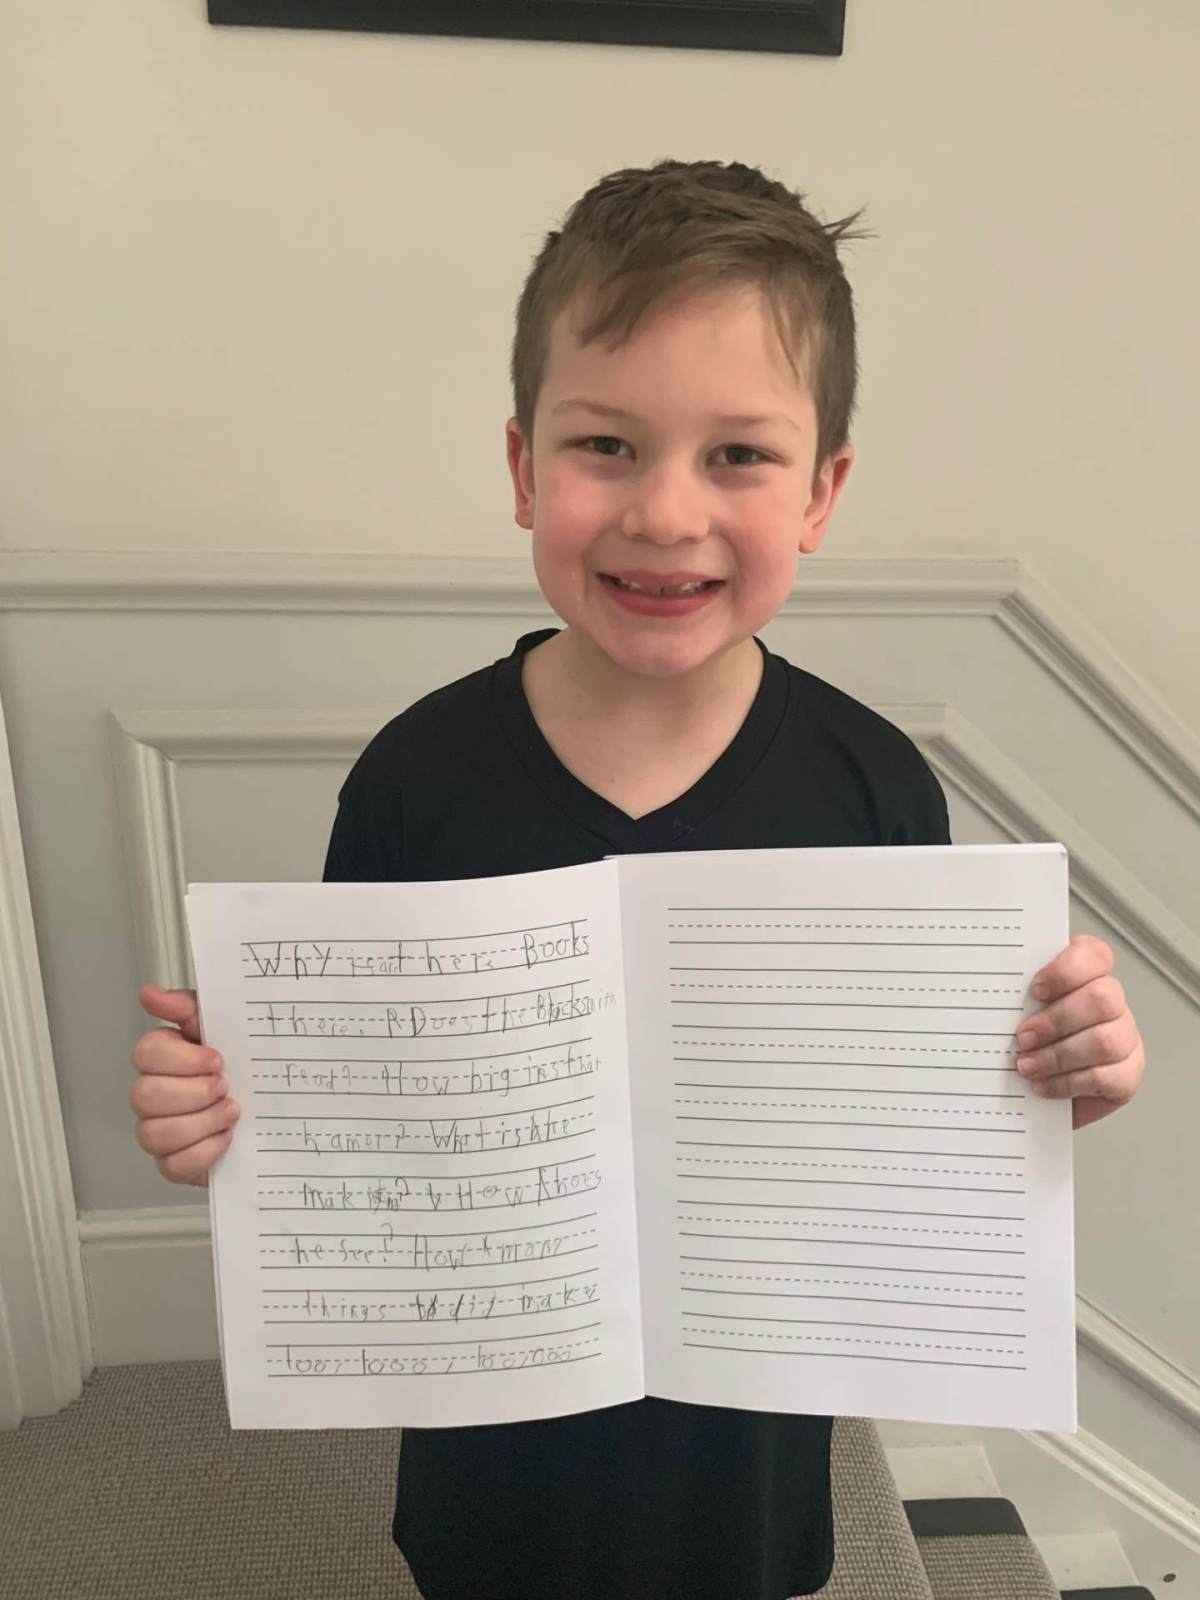 Why isant here Books
there. A Does the Blacksmith
read? How big is that
hamer? What is the
making? How hoes
he free? How many
things did make
100,1000,100,1000